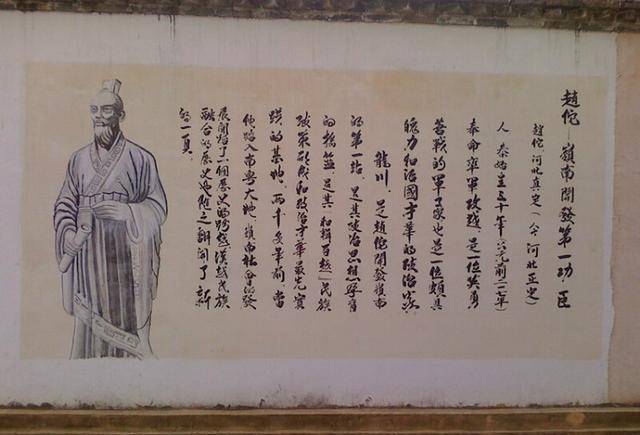 趙佗—嶺南開發第一功臣
趙佗,河北真定(今河北正定)
人,秦始皇三十年(公元前二一七年)
奉命率軍攻越,是一位英勇
善戰的軍事家也是一位頗具
魄力和治國才華的政治家。
龍川,是趙佗開發嶺南
的第一站,是其政治思想孕育
的搖籃,是其「和輯百越」民族
政策形成和政治才華最先實
踐的基地。兩千多年前,當
他踏入南粤大地,嶺南社會的發
展開始了一個歷史的跨越,漢越民族
融合的歷史也隨之翻開了新
的一頁。